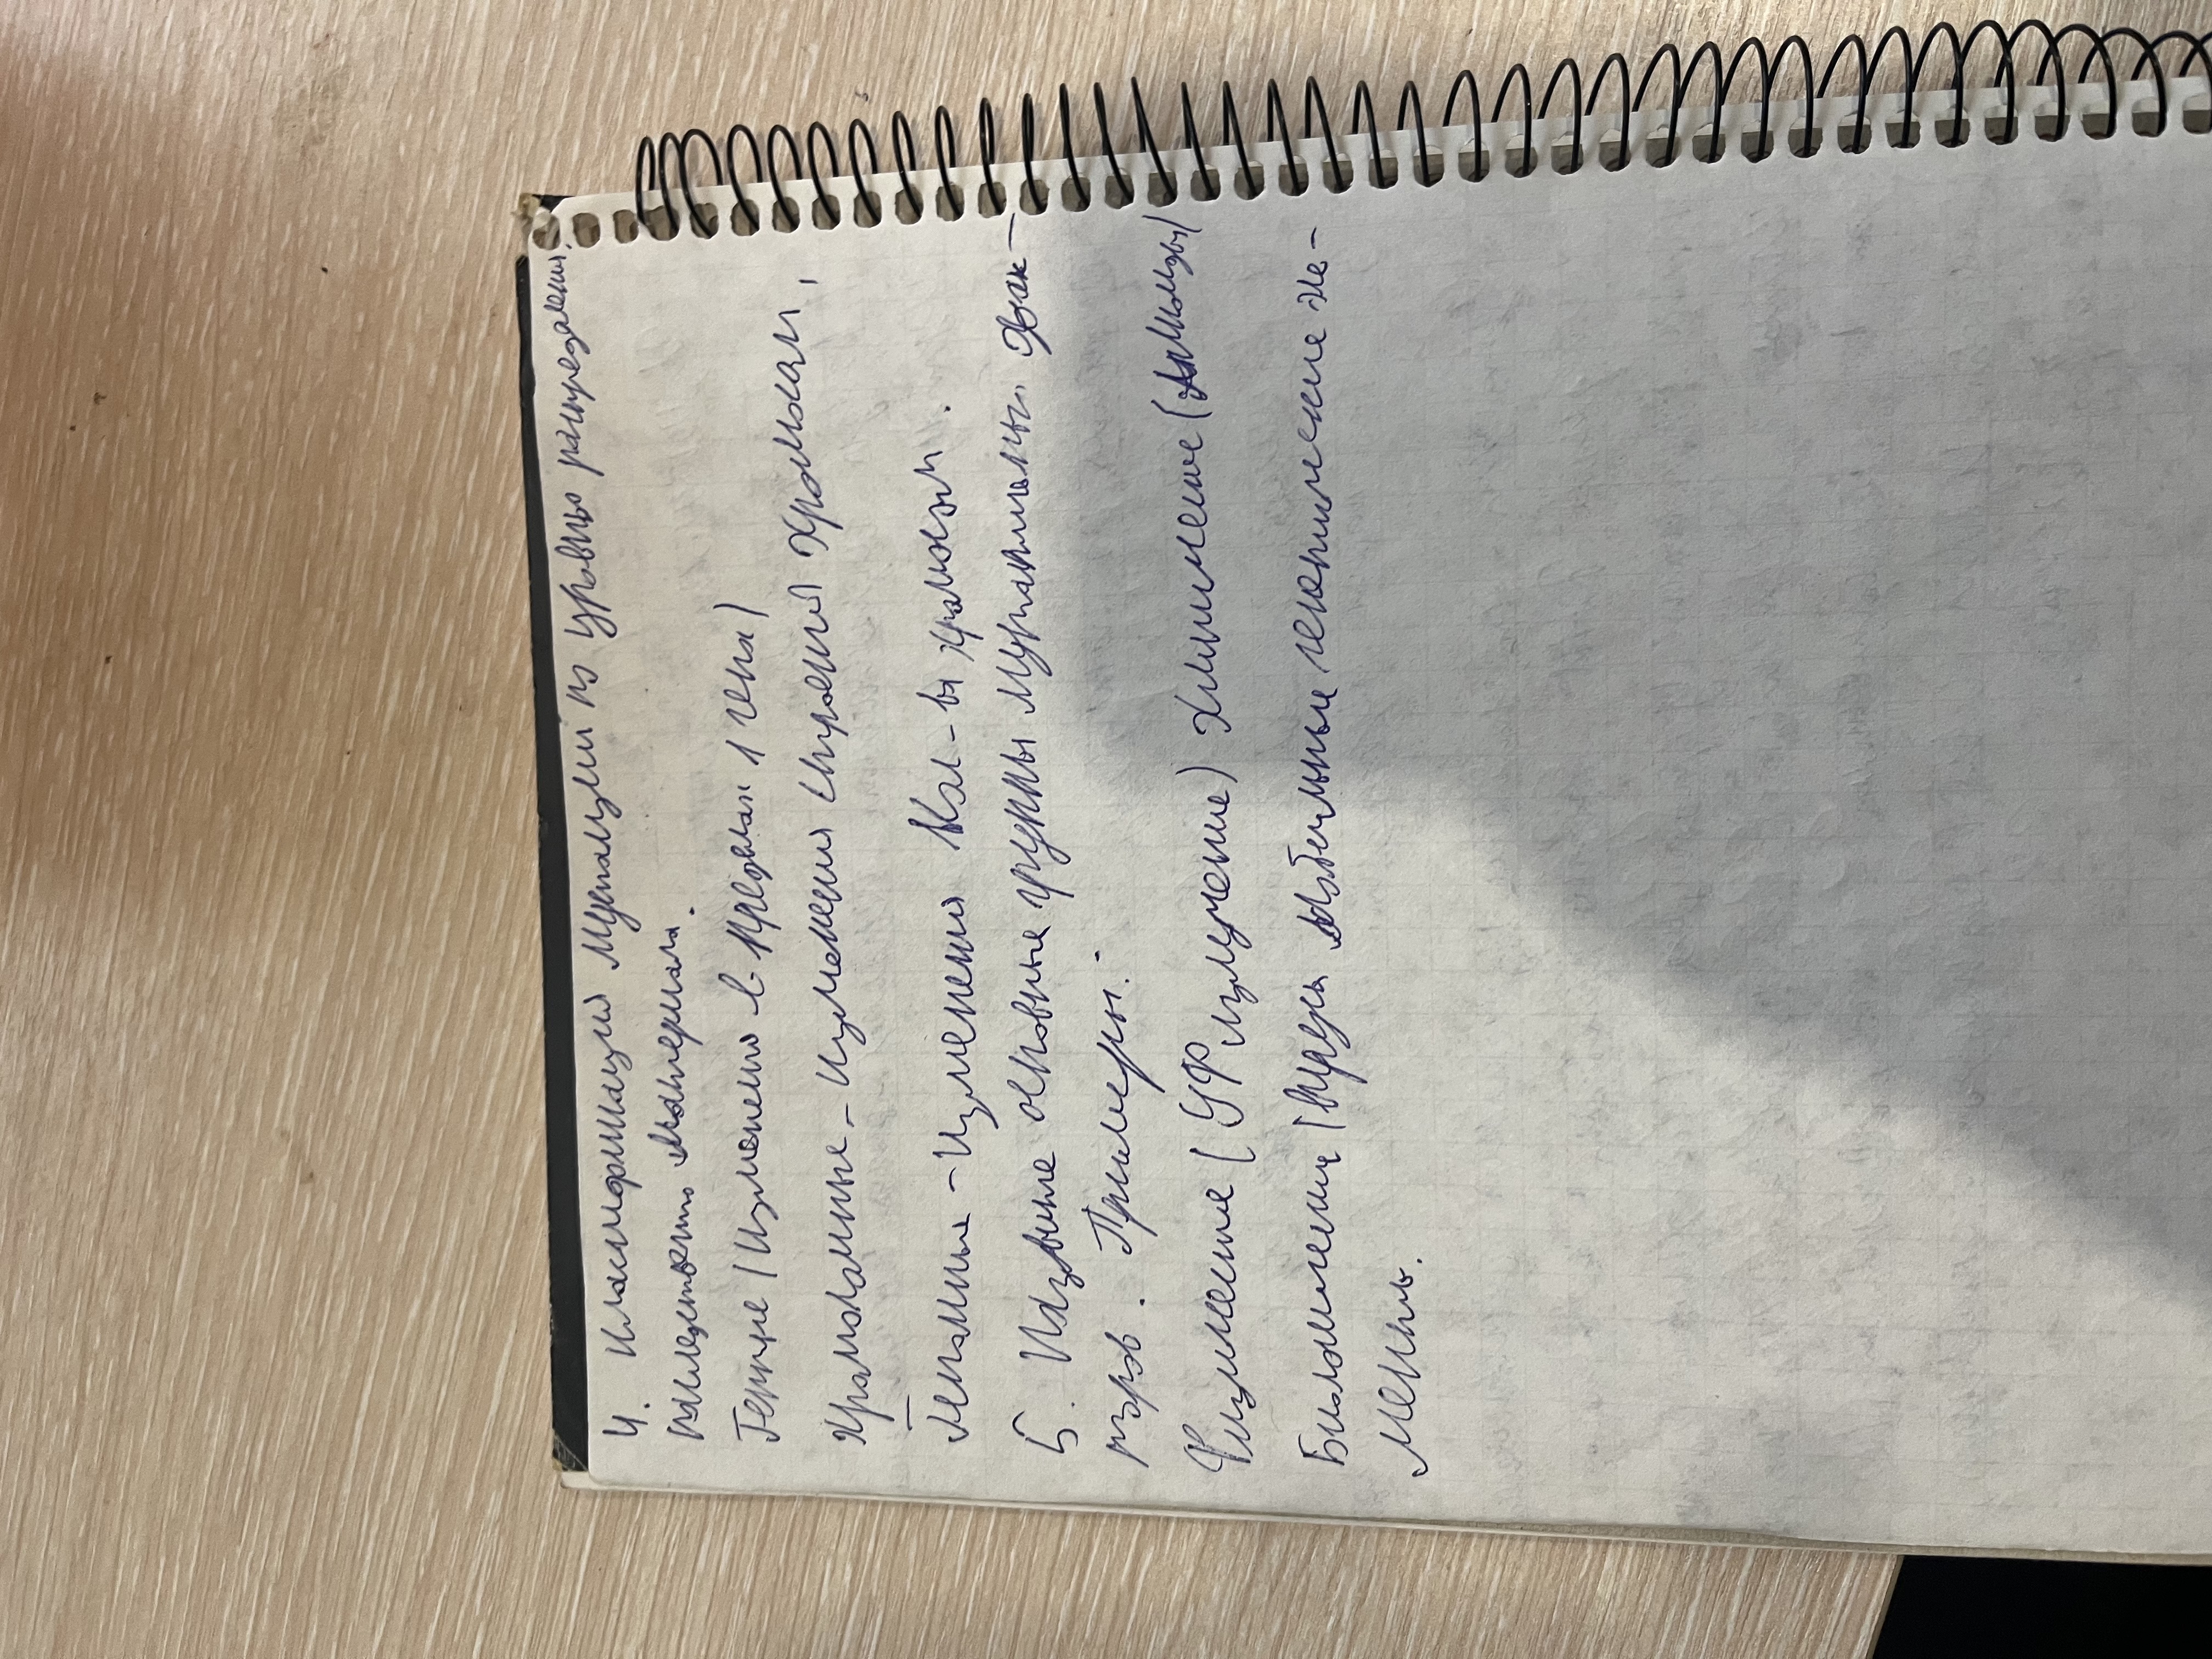 4. Классификация мутации по уровню распределения
наследственного материала.
Генные (изменения в пределах 1 гена)
Хромосомные - изменения строения хромосом,
Геномные - изменения кол-ва хромосом.
5. Назовите основные группы мутагенных фак-
торов. Примеры:
Физические (УФ излучение) Химические (
Биологические (вирусы мобильные генетические эле-
менты.